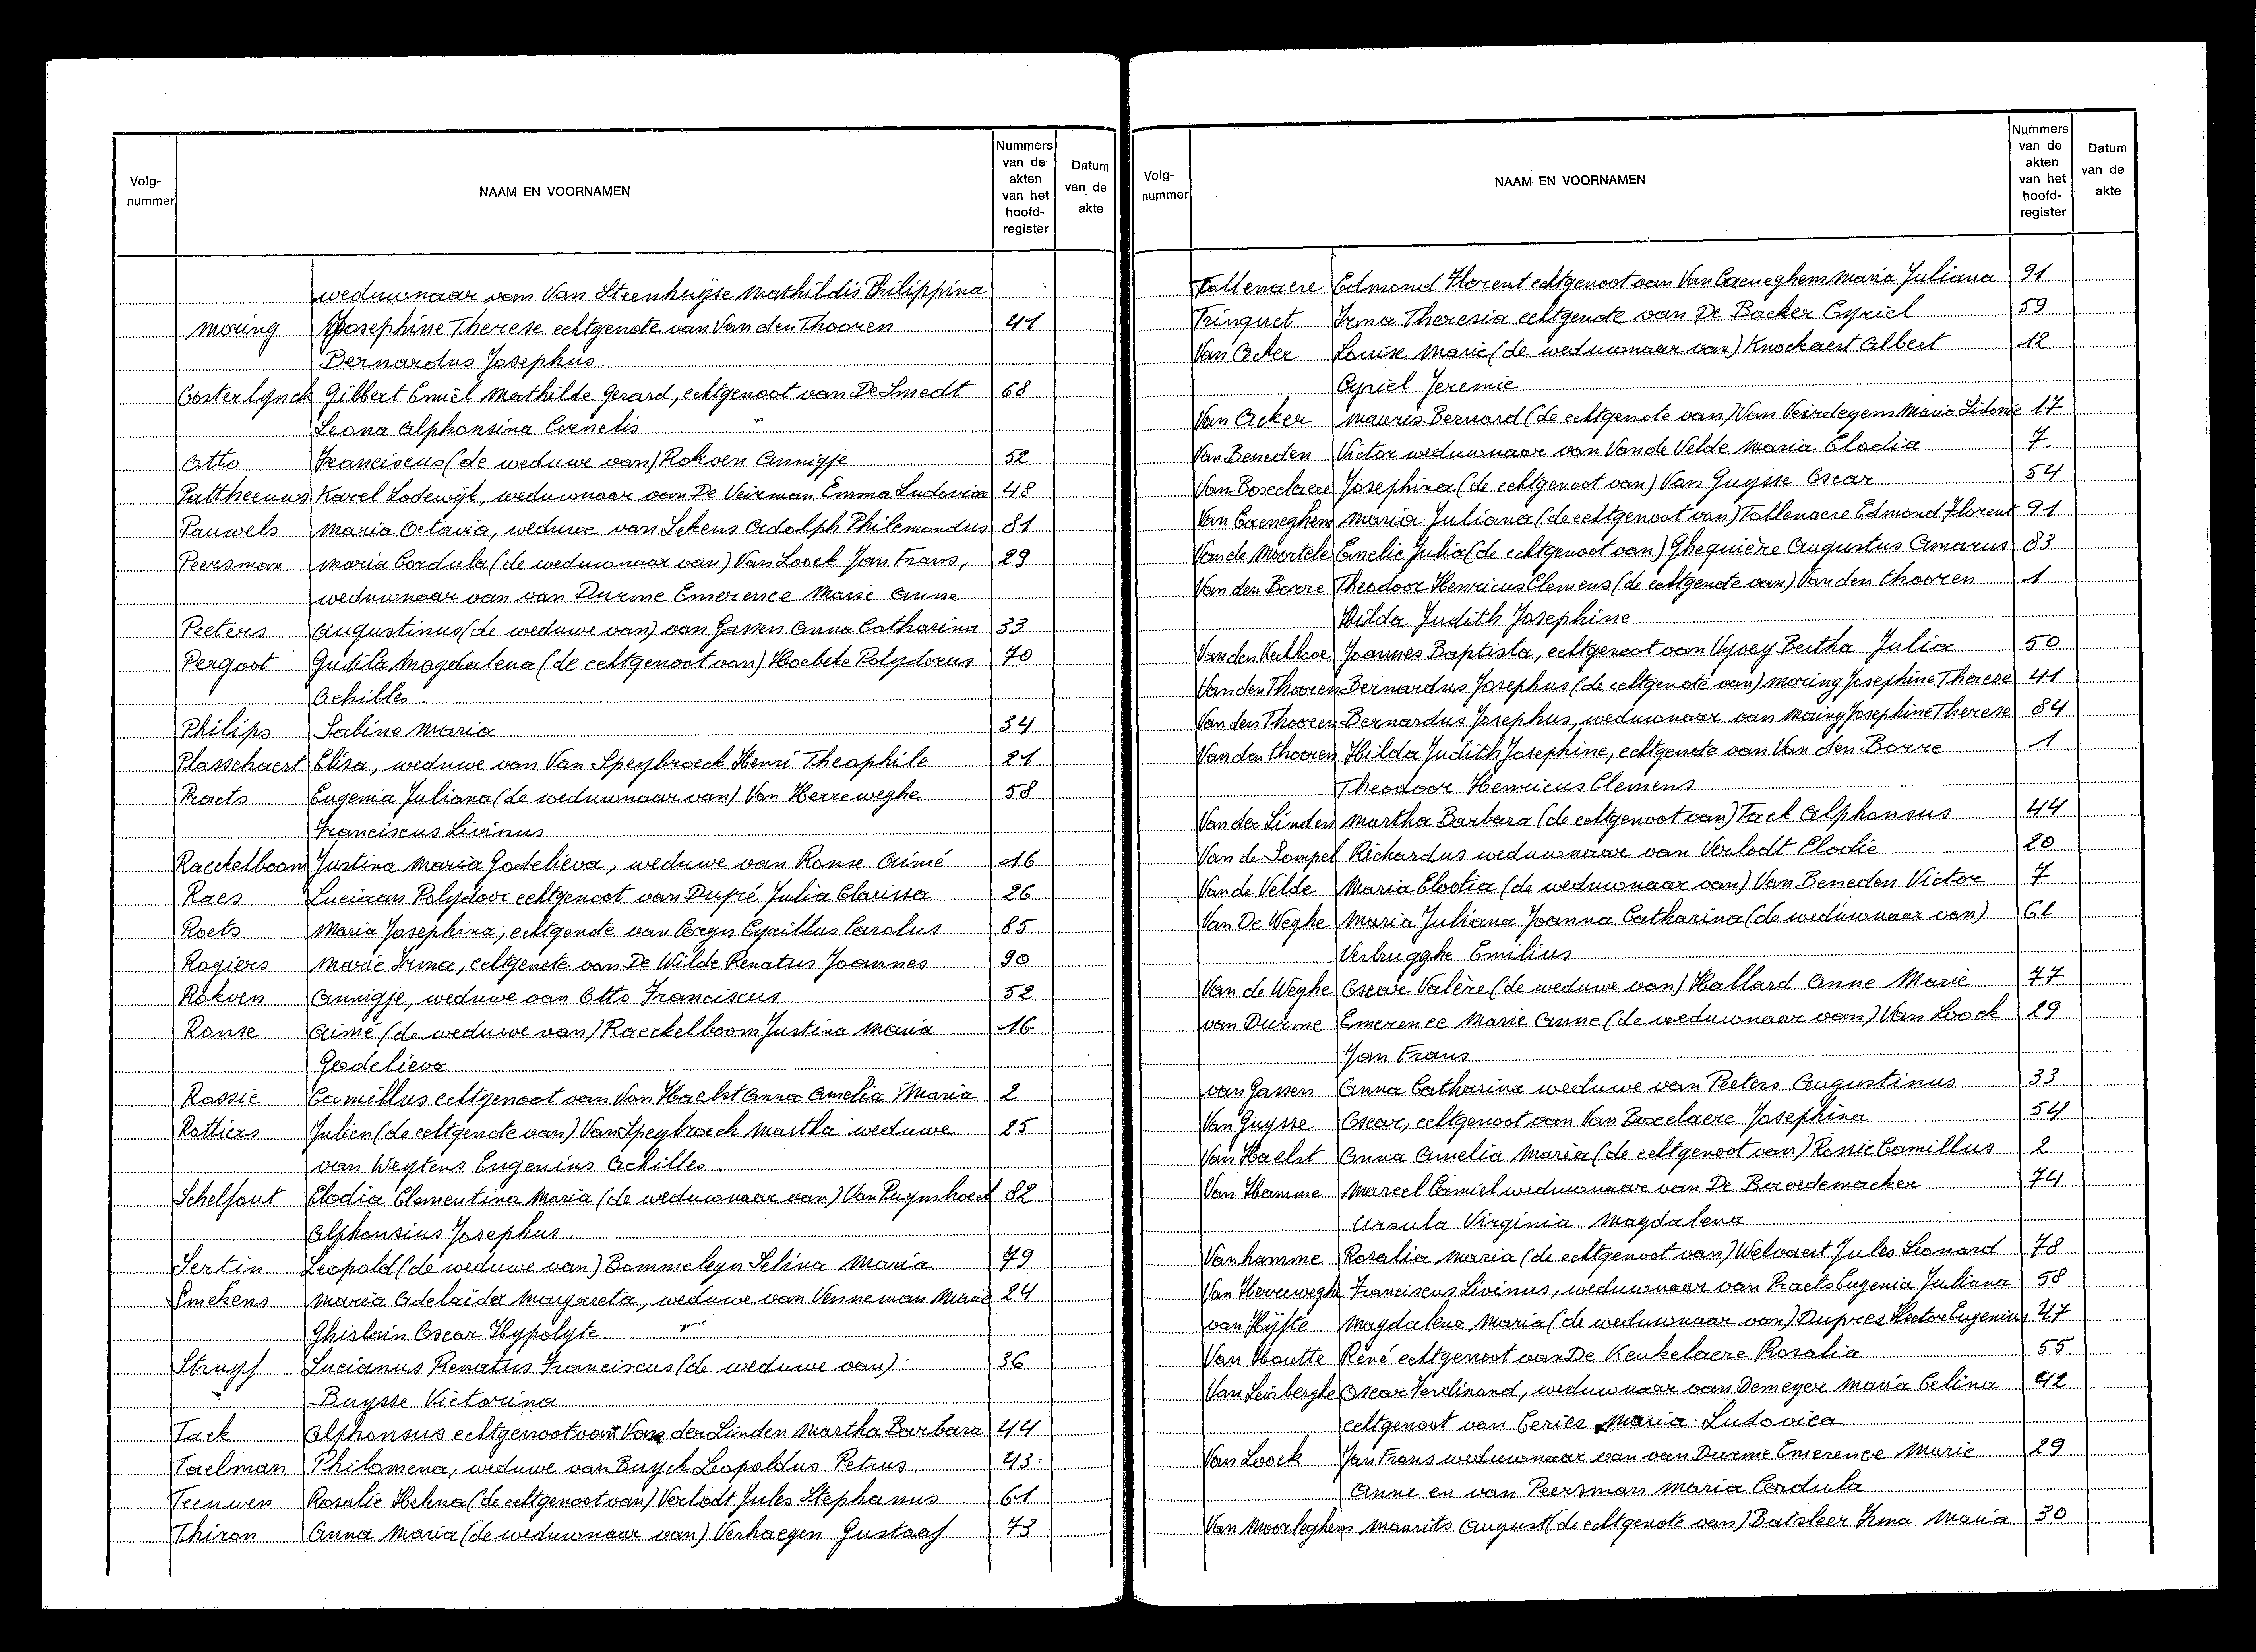 Volg-nummer NAAM EN VOORNAMEN Nummers van de akten van het hoofd-register Datum van de akte
weduwnaar van Van Steenhuyse Mathildis Philippina
Moring Josephine Therese echtgenote van Van den Thooren 41
Bernardus Josephus
Oosterlynck Gilbert Emiel Mathilde Gerard, echtgenoot van De Smedt 68
Leona Alphonsina Cornelis
Otto Franciscus (de weduwe van) Rokven Annigje 52
Pattheeuws Karel Lodewijk, weduwnaar van De Veirman Emma Ludovica 48
Pauwels Maria Octavia, weduwe van Lekens Adolph Philemondus 81
Peersman Maria Cordula (de weduwnaar van) Van Loock Jan Frans, 29
weduwnaar van van Durme Emerence Marie Anne
Peeters Augustinus (de weduwe van) van Gassen Anna Catharina 33
Pergoot Gudila Magdalena (de echtgenoot van) Hoebeke Polydorus 70
Achilles.
Philips Sabine Maria 34
Plasschaert Elisa, weduwe van Van Speybroeck Henri Theophile 21
Praets Eugenia Juliana (de weduwnaar van) Van Herreweghe 58
Franciscus Livinus
Raeckelboom Justina Maria Godelieva, weduwe van Ronse Aimé 16
Raes Luciaan Polydoor echtgenoot van Dupré Julia Clarissa 26
Roets Maria Josephina, echtgenote van Coryn Cyrillus Carolus 85
Rogiers Marie Irma, echtgenote van De Wilde Renatus Joannes 90
Rokven Annigje, weduwe van Otto Franciscus 52
Ronse Aimé (de weduwe van) Raeckelboom Justina Maria 16
Godelieva
Rossie Camillus echtgenoot van Van Haelst Anna Amelia Maria 2
Rottiers Julien (de echtgenote van) Van Speybroeck Martha weduwe 25
van Weytens Eugenius Achilles.
Schelfout Elodia Clementina Maria (de weduwnaar van) Van Puymbroeck 82
Alphonsius Josephus.
Sertin Leopold (de weduwe van) Bommeleyn Selina Maria 79
Smekens Maria Adelaida Margareta, weduwe van Venneman Marie 24
Ghislain Oscar Hypolyte.
Struyf Lucianus Renatus Franciscus (de weduwe van) 36
Buysse Victorina
Tack Alphonsus echtgenoot van Van der Linden Martha Barbara 44
Taelman Philomena, weduwe van Buyck Leopoldus Petrus 43
Teeuwen Rosalie Helena (de echtgenoot van) Verlodt Jules Stephanus 61
Thiron Anna Maria (de weduwnaar van) Verhaegen Gustaaf 73
Volg-nummer NAAM EN VOORNAMEN Nummers van de akten van het hoofd-register Datum van de akte
Tollenaere Edmond Florent echtgenoot van Van Caeneghem Maria Juliana 91
Trinquet Irma Theresia echtgenote van De Backer Cyriel 59
Van Acker Louise Marie (de weduwnaar van) Knockaert Albert 12
Cyriel Jeremie
Van Acker Mauris Bernard (de echtgenote van) Van Veirdegem Maria Sidonie 17
Van Beneden Victor weduwnaar van Van de Velde Maria Elodia 7
Van Boxelaere Josephina (de echtgenoot van) Van Guysse Oscar 54
Van Caeneghem Maria Juliana (de echtgenoot van) Tollenaere Edmond Florent 91
Van de Moortele Emelie Julia (de echtgenoot van) Ghequière Augustus Amarus 83
Van den Borre Theodoor Henricus Clemens (de echtgenote van) Van den thooren 1
Hilda Judith Josephine
Van den Kerkhove Joannes Baptista, echtgenoot van Vyvey Bertha Julia 50
Van den Thooren Bernardus Josephus (de echtgenote van) Moring Josephine Therese 41
Van den Thooren Bernardus Josephus, weduwnaar van Moring Josephine Therese 84
Van den thooren Hilda Judith Josephine, echtgenote van Van den Borre 1
Theodoor Henricus Clemens
Van der Linden Martha Barbara (de echtgenoot van) Tack Alphonsus 44
Van de Sompel Richardus weduwnaar van Verlodt Elodie 20
Van de Velde Maria Elodia (de weduwnaar van) Van Beneden Victor 7
Van De Weghe Maria Juliana Joanna Catharina (de weduwnaar van) 62
Verbrugghe Emilius
Van de Weghe Oscar Valère (de weduwe van) Hallard Anne Marie 77
van Durme Emerence Marie Anne (de weduwnaar van) Van Loock 29
Jan Frans
van Gassen Anna Catharina weduwe van Peeters Augustinus 33
Van Guysse Oscar, echtgenoot van Van Boxelaere Josephina 54
Van Haelst Anna Amelia Maria (de echtgenoot van) Rossie Camillus 2
Van Hamme Marcel Camiel weduwnaar van De Baerdemaeker 74
Ursula Virginia Magdalena
Vanhamme Rosalia Maria (de echtgenoot van) Welvaert Jules Leonard 78
Van Herreweghe Franciscus Livinus, weduwnaar van Praets Eugenia Juliana 58
van Hyfte Magdalena Maria (de weduwnaar van) Dupres Hector Eugenius 47
Van Houtte René echtgenoot van De Keukelaere Rosalia 55
Van Leirberghe Oscar Ferdinand, weduwnaar van Demeyere Maria Celina 42
echtgenoot van Ceries Maria Ludovica
Van Loock Jan Frans weduwnaar van van Durme Emerence Marie 29
Anne en van Peersman Maria Cordula
Van Moorleghem Maurits August (de echtgenote van) Batsleer Irma Maria 30